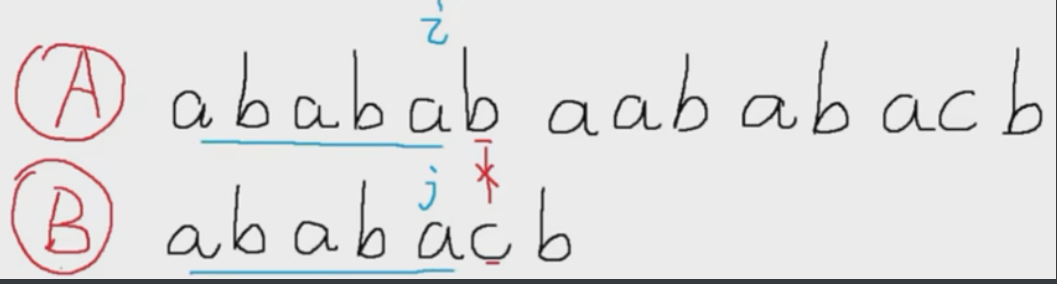 i
A ababab aababacb
j *
B ababacb